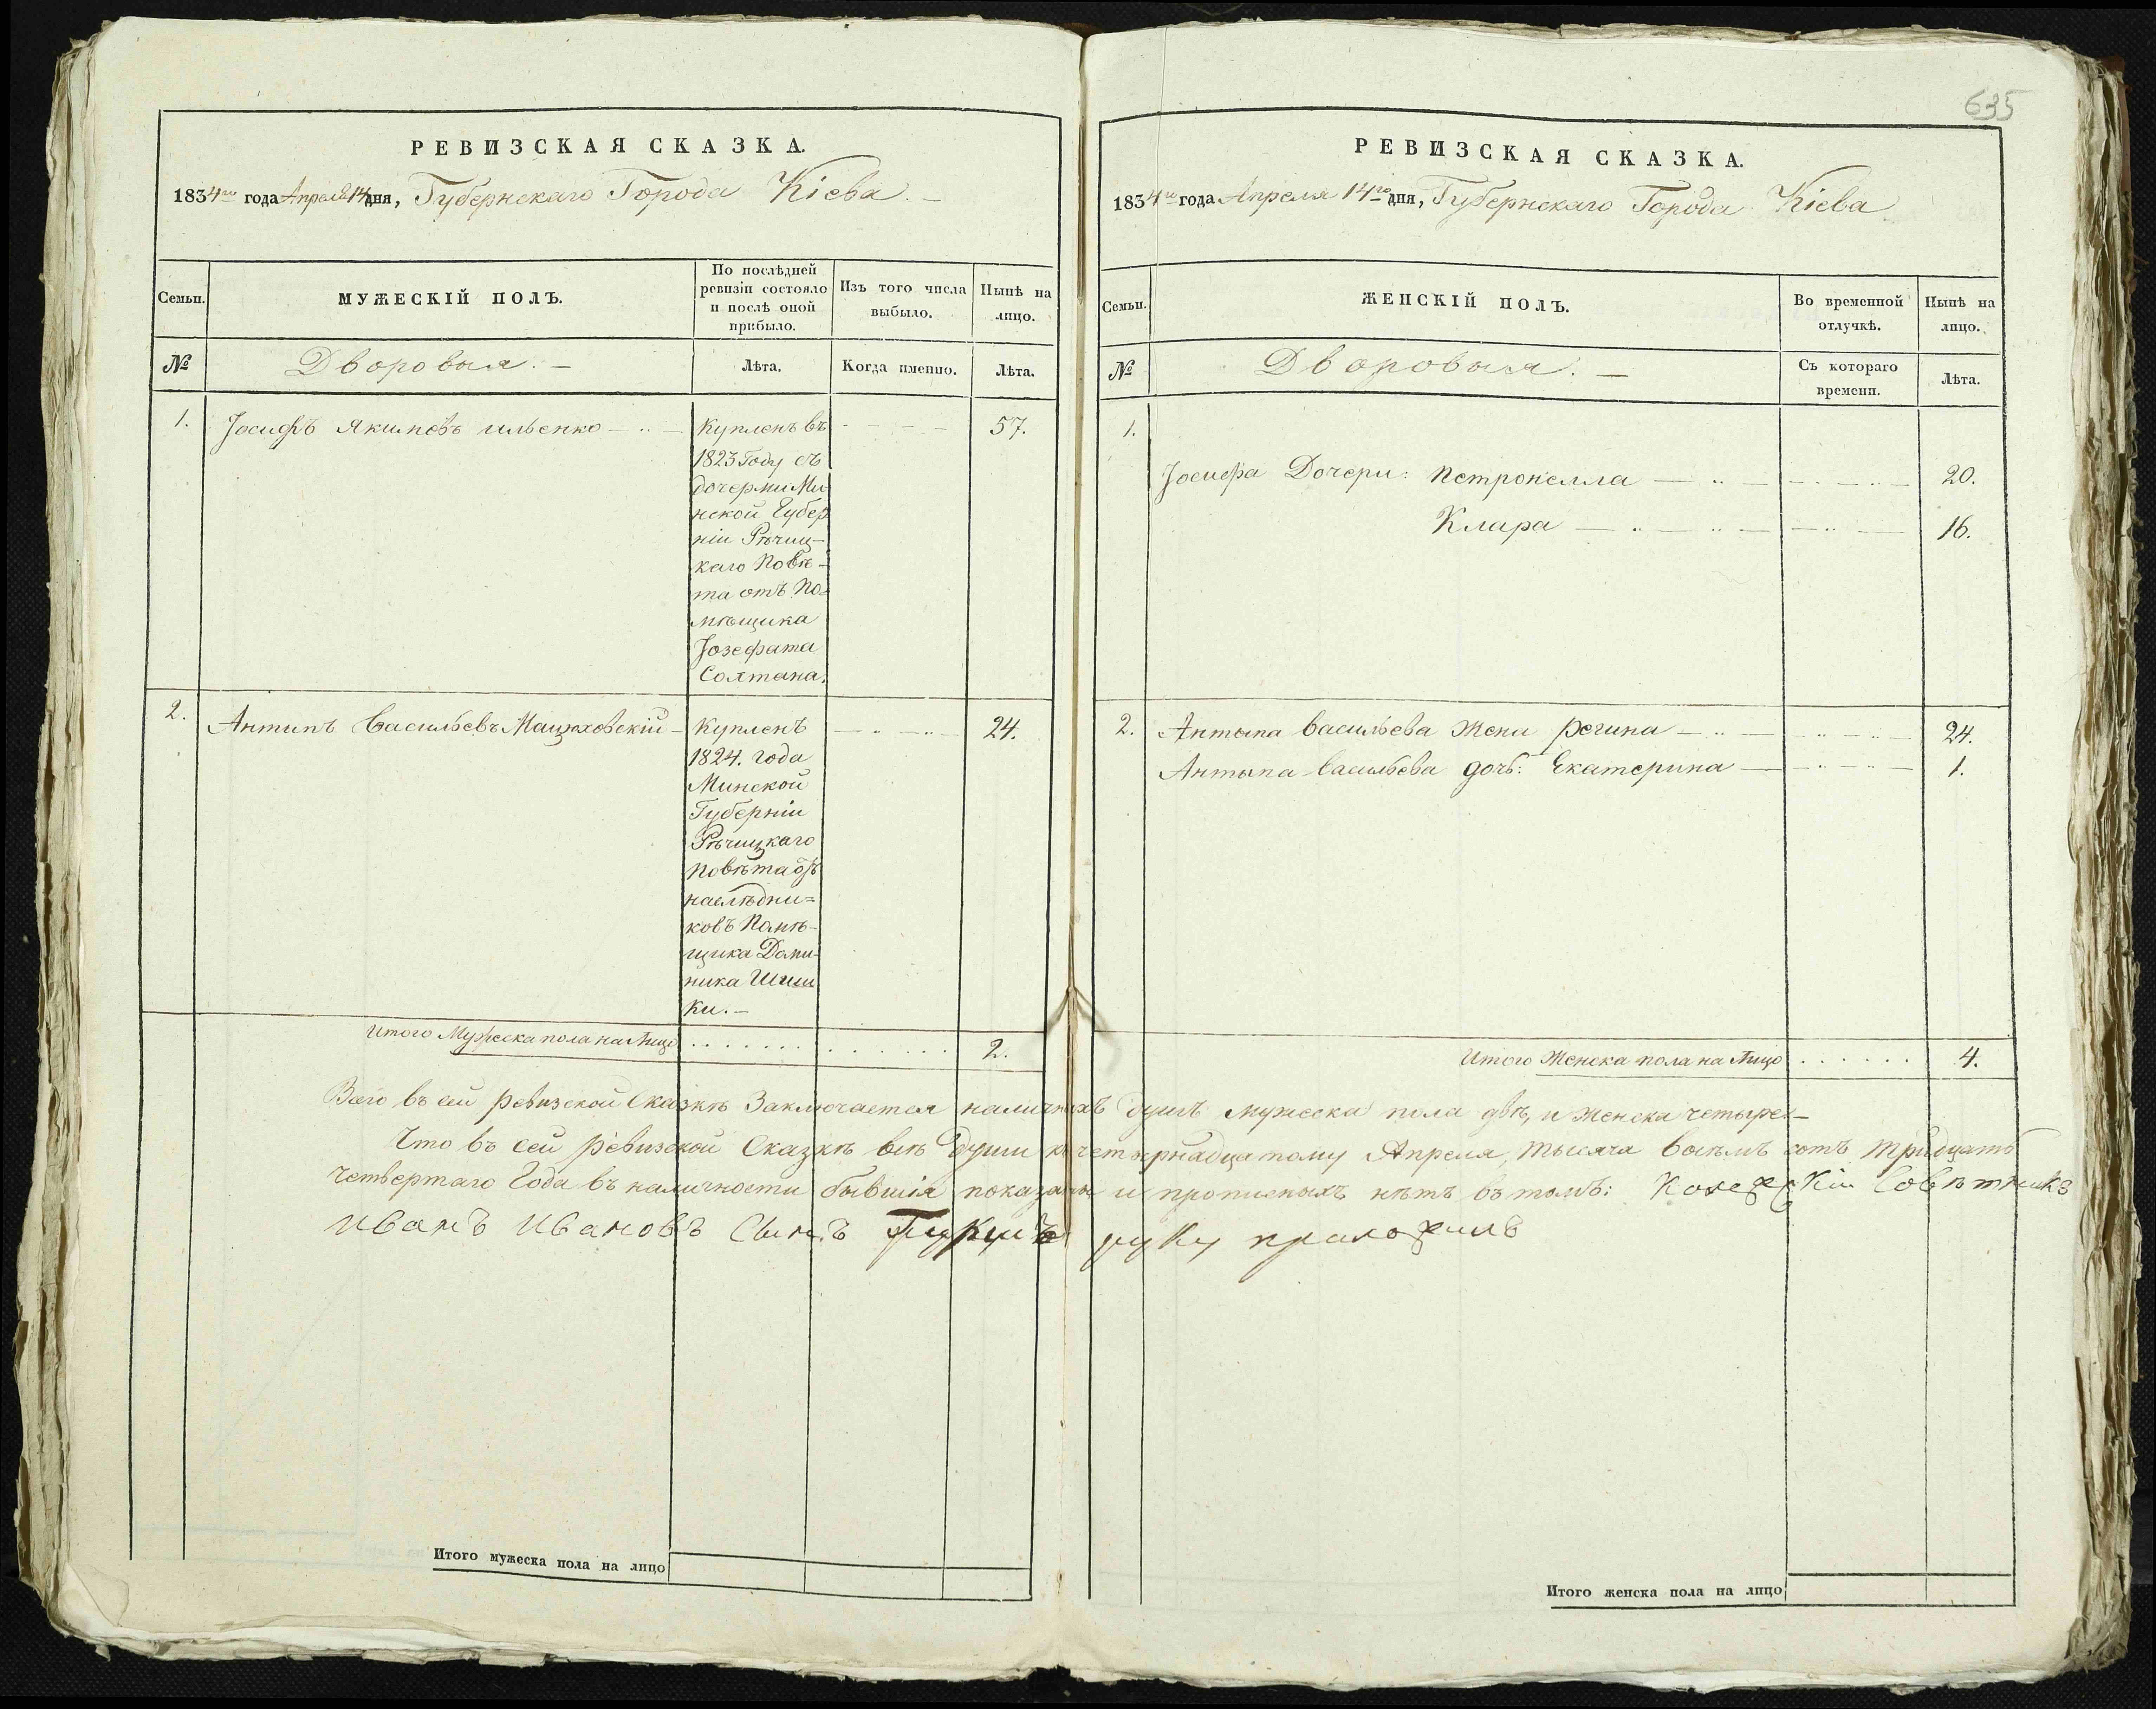 635
РЕВИЗСКАЯ СКАЗКА.
1834го года Апреля 14 дня, Губернскаго Города Кіева. —
Семьи.
МУЖЕСКІЙ ПОЛЪ.
По послѣдней
ревизіи состояло
и послѣ оной
прибыло.
Изъ того числа
выбыло.
Нынѣ на
лицо.
№
Дворовыя. —
Лѣта.
Когда именно.
Лѣта.
1.
Іосифъ Якимовъ ильенко
57.
Купленъ въ
1823 Году съ
дочерми Ми
нской Губер
ніи Рѣчиц-
каго Повѣ-
та отъ По=
мѣщика
Іозефата
Солтана.
2.
Антипъ Васильевъ
24.
Купленъ
1824. года
Минской
Губерніи
Рѣчицкаго
Повѣта отъ
наслѣдни=
ковъ Помѣ-
щика Доми-
ника
ки. —
Итого Мужеска пола на Лицо
2.
РЕВИЗСКАЯ СКАЗКА.
1834го года Апреля 14го дня, Губернскаго Города Кіева
Семьи.
ЖЕНСКІЙ ПОЛЪ.
Во временной
отлучкѣ.
Нынѣ на
лицо.
№
Дворовыя. —
Съ котораго
времени.
Лѣта.
1.
Іосифа Дочери: Петронелла
20.
Клара
16.
2.
Антипа Васильева Жена Регина
24.
Антипа Васильева дочь: Екатерина
1.
Итого Женска пола на Лицо
4.
Всего въ сей ревизской Сказкѣ Заключается наличныхъ душъ мужеска пола двѣ, и женска четыре —
Что въ сей ревизской Сказкѣ всѣ души къ четырнадцатому Апреля, тысяча восемъ сотъ тридцать
четвертаго Года въ наличности бывшія показаны и прописныхъ нѣтъ въ томъ: Коллежскій Совѣтникъ
Иванъ Ивановъ Сынъ руку приложилъ
Итого мужеска пола на лицо
Итого женска пола на лицо